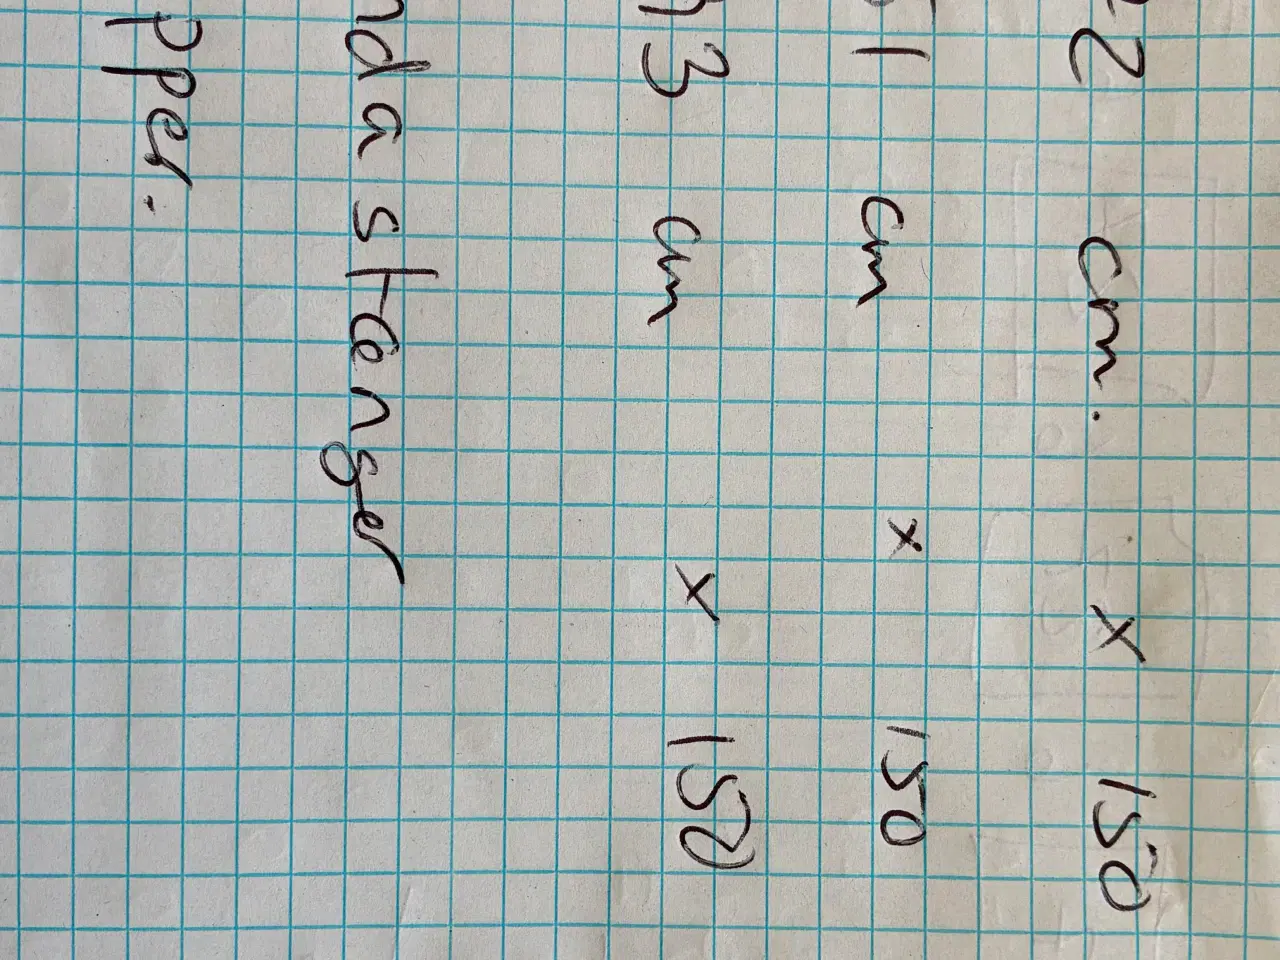 2 cm. x 150
51 cm x 150
3 cm x 150
nda stenger
pper.